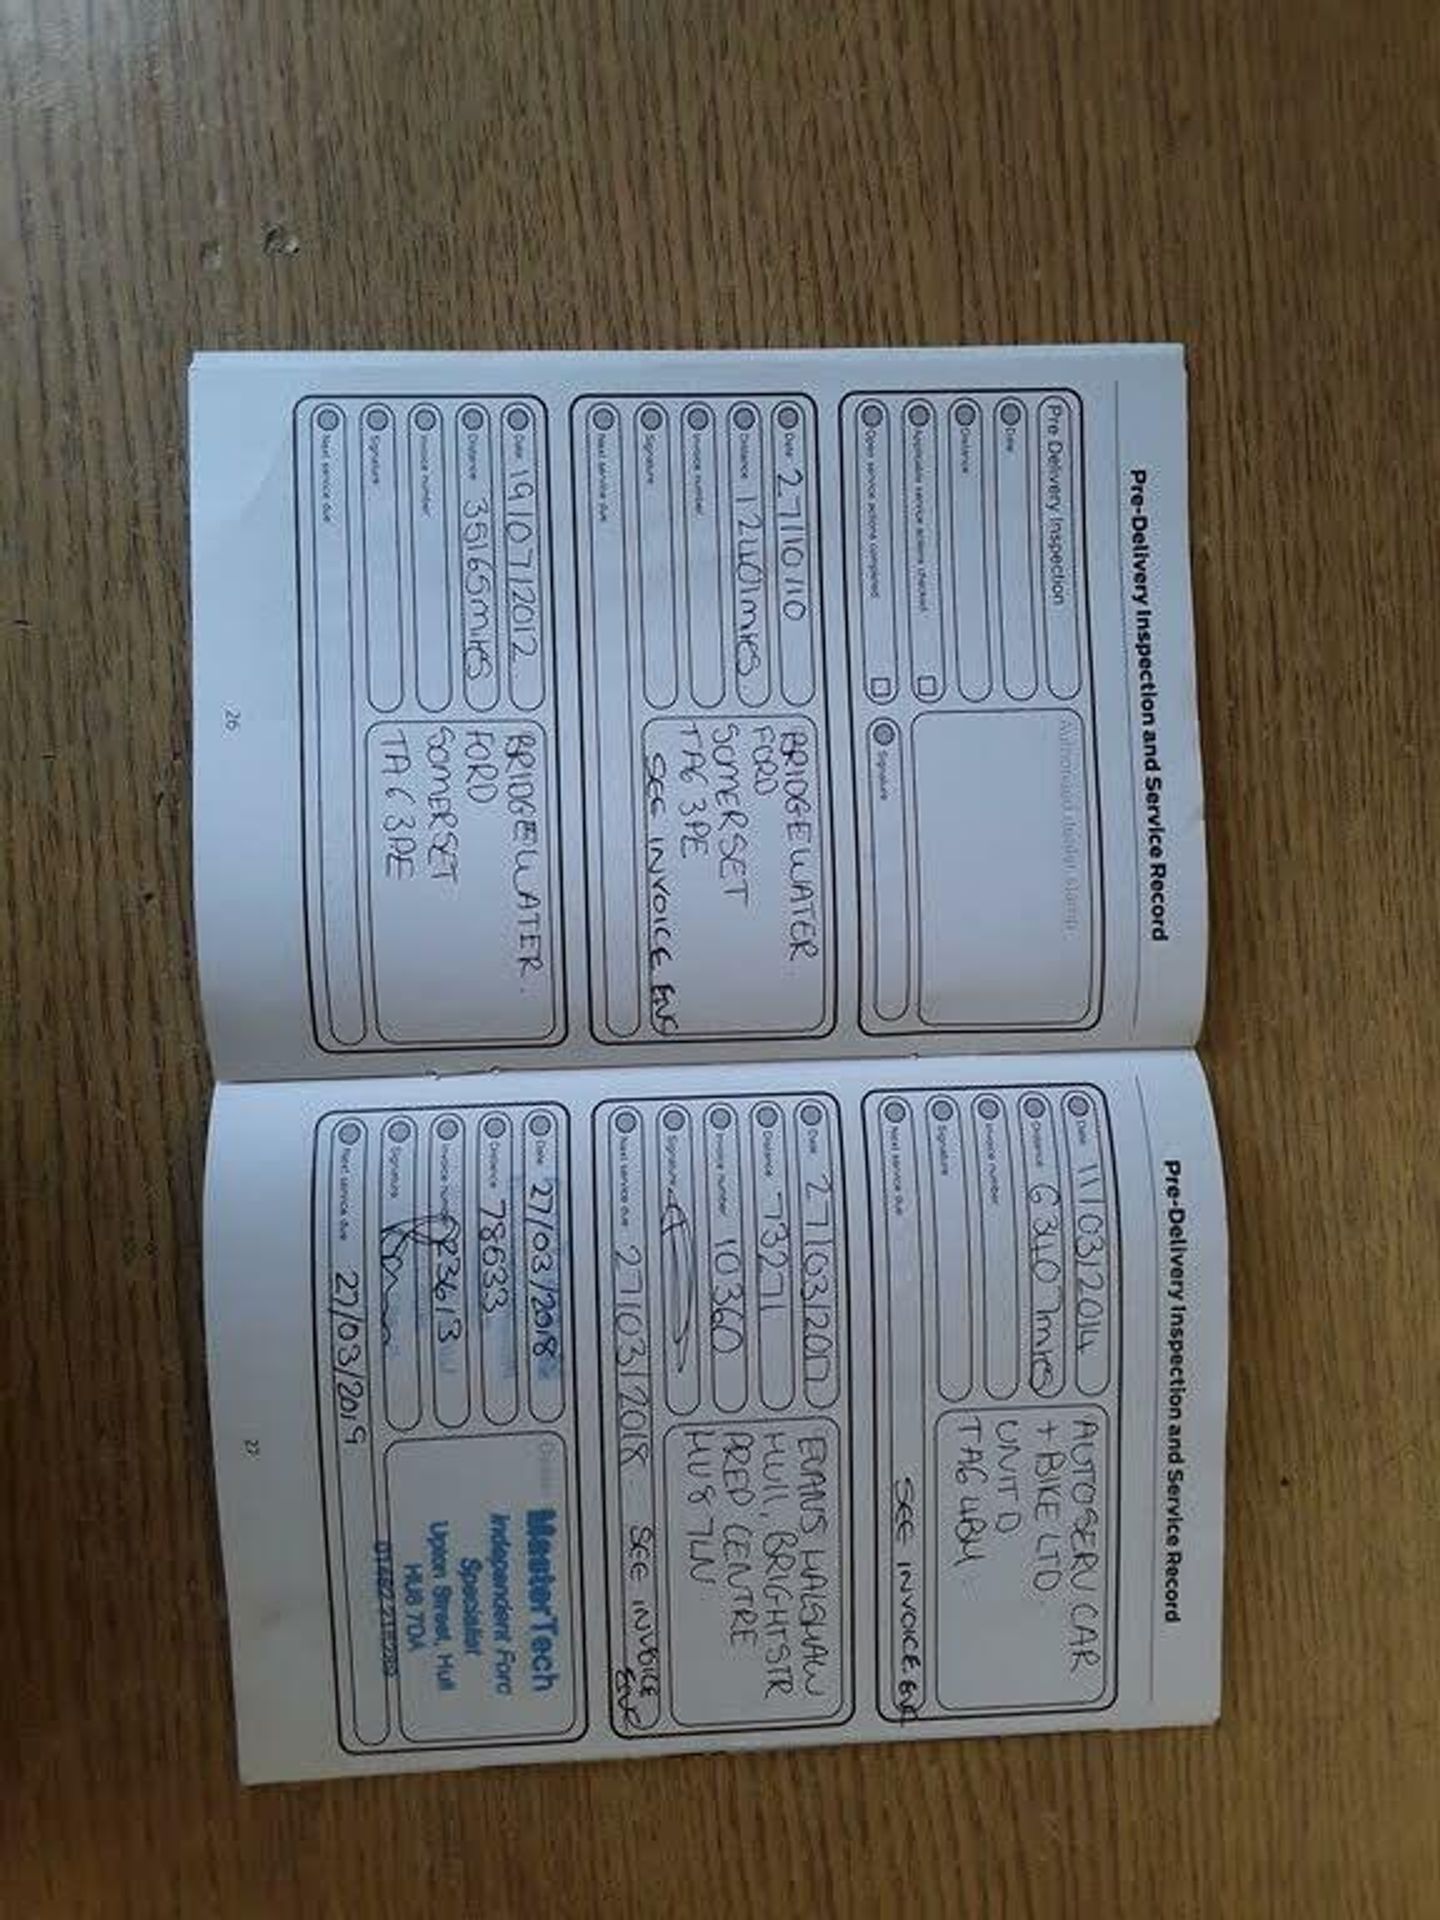 Pre-Delivery Inspection and Service Record
Pre Delivery Inspection
Date
Distance
Applicable service actions checked
Open service actions completed
Authorised dealer stamp
Signature
Date 27/10/10
Distance 12401miles
Invoice number
Signature
Next service due
BRIDGEWATER
FORD
SOMERSET
TA6 3PE
SEE INVOICE ENC
Date 19/07/2012
Distance 35165miles
Invoice number
Signature
Next service due
BRIDGEWATER.
FORD
SOMERSET
TA6 3PE
26
Pre-Delivery Inspection and Service Record
Date 11/03/2014
Distance 63407miles
Invoice number
Signature
Next service due
AUTOSERV CAR
+ BIKE LTD
UNIT D
TA6 4BH
SEE INVOICE ENC
Date 27/03/2017
Distance 73271
Invoice number 10360
Signature
Next service due 27/03/2018 SEE INVOICE
ENC
EVANS HALSHAW
HULL, BRIGHT STR
PREP CENTRE
HU8 7LN
Date 27/03/2018
Distance 78633
Invoice number
Signature
Next service due 27/03/2019
MasterTech
Independent Ford
Specialist
Upton Street, Hull
HU8 7DA
27